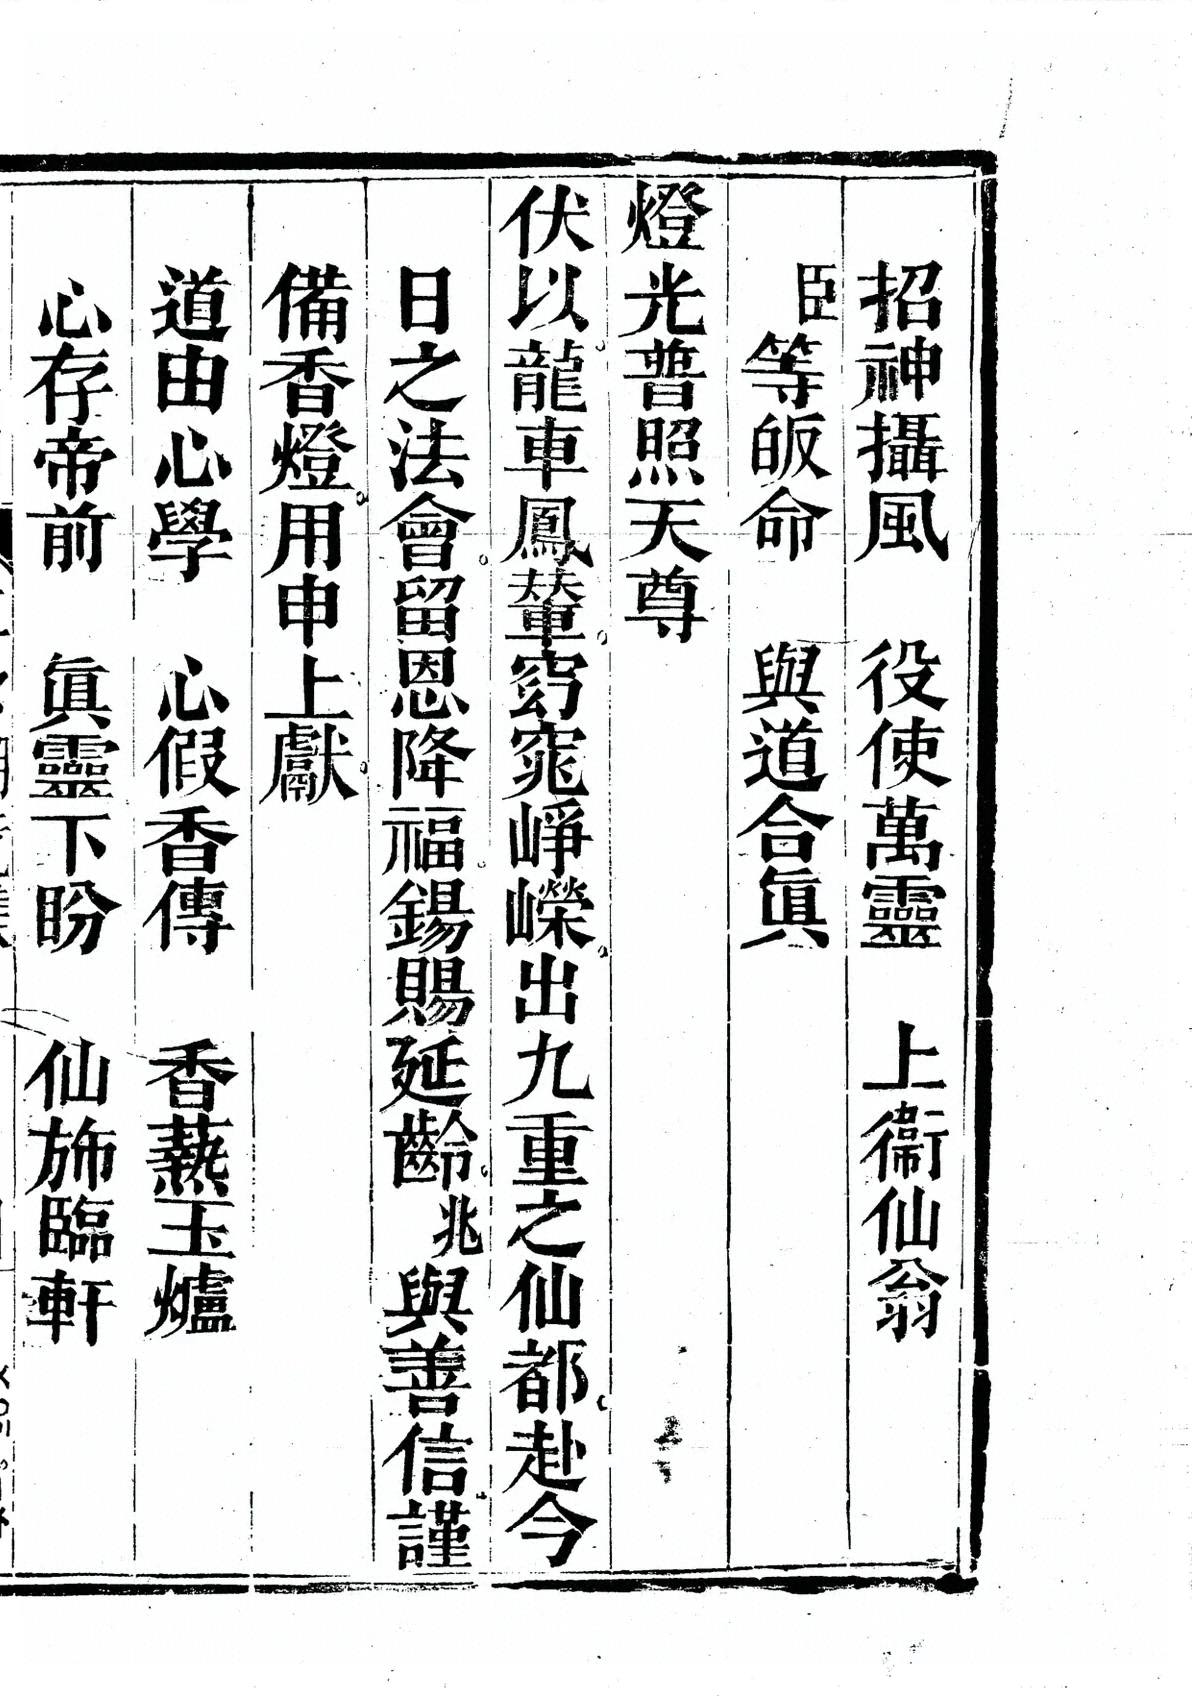 招神攝風　役使萬靈　上衞仙翁
臣等皈命　與道合眞
燈光普照天尊
伏以。龍車鳳輦。窈窕崢嶸。出九重之仙都。赴今
日之法會。留恩降福。錫賜延齡。兆與善信。謹
備香燈。用申上獻。
道由心學　心假香傳　香爇玉爐
心存帝前　眞靈下盼　仙斾臨軒